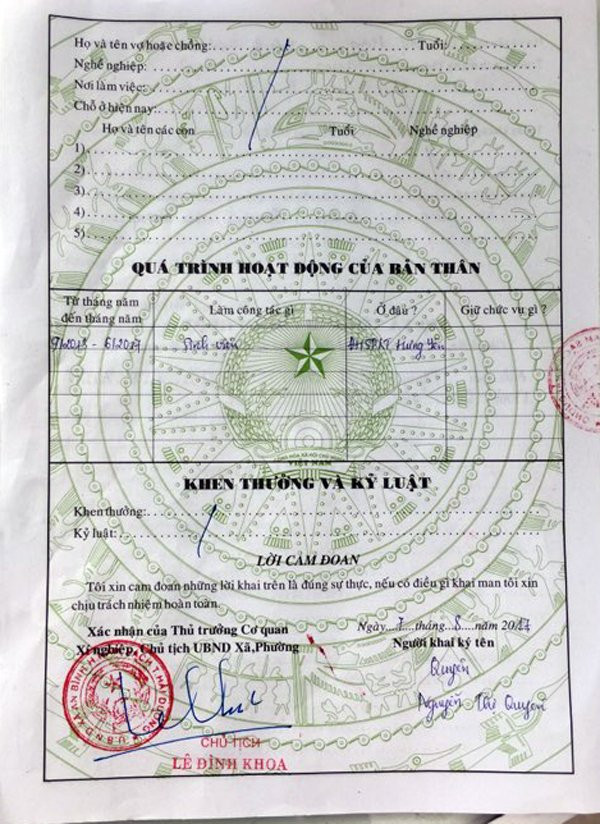 Họ và tên vợ hoặc chồng: Tuổi:
Nghề nghiệp:
Nơi làm việc:
Chỗ ở hiện nay:
Họ và tên các con Tuổi Nghề nghiệp
1)
2)
3)
4)
5)
QUÁ TRÌNH HOẠT ĐỘNG CỦA BẢN THÂN
Từ tháng năm đến tháng năm Làm công tác gì Ở đâu ? Giữ chức vụ gì ?
9/2013 - 6/2017 Sinh viên ĐHSPKT Hưng Yên
VIỆT NAM
KHEN THƯỞNG VÀ KỶ LUẬT
Khen thưởng:
Kỷ luật:
LỜI CAM ĐOAN
Tôi xin cam đoan những lời khai trên là đúng sự thực, nếu có điều gì khai man tôi xin
chịu trách nhiệm hoàn toàn.
Ngày 7 tháng 8 năm 2017
Xác nhận của Thủ trưởng Cơ quan Người khai ký tên
Xí nghiệp, Chủ tịch UBND Xã,Phường
Quyên
Nguyễn Thị Quyên
CHỦ TỊCH
LÊ ĐÌNH KHOA